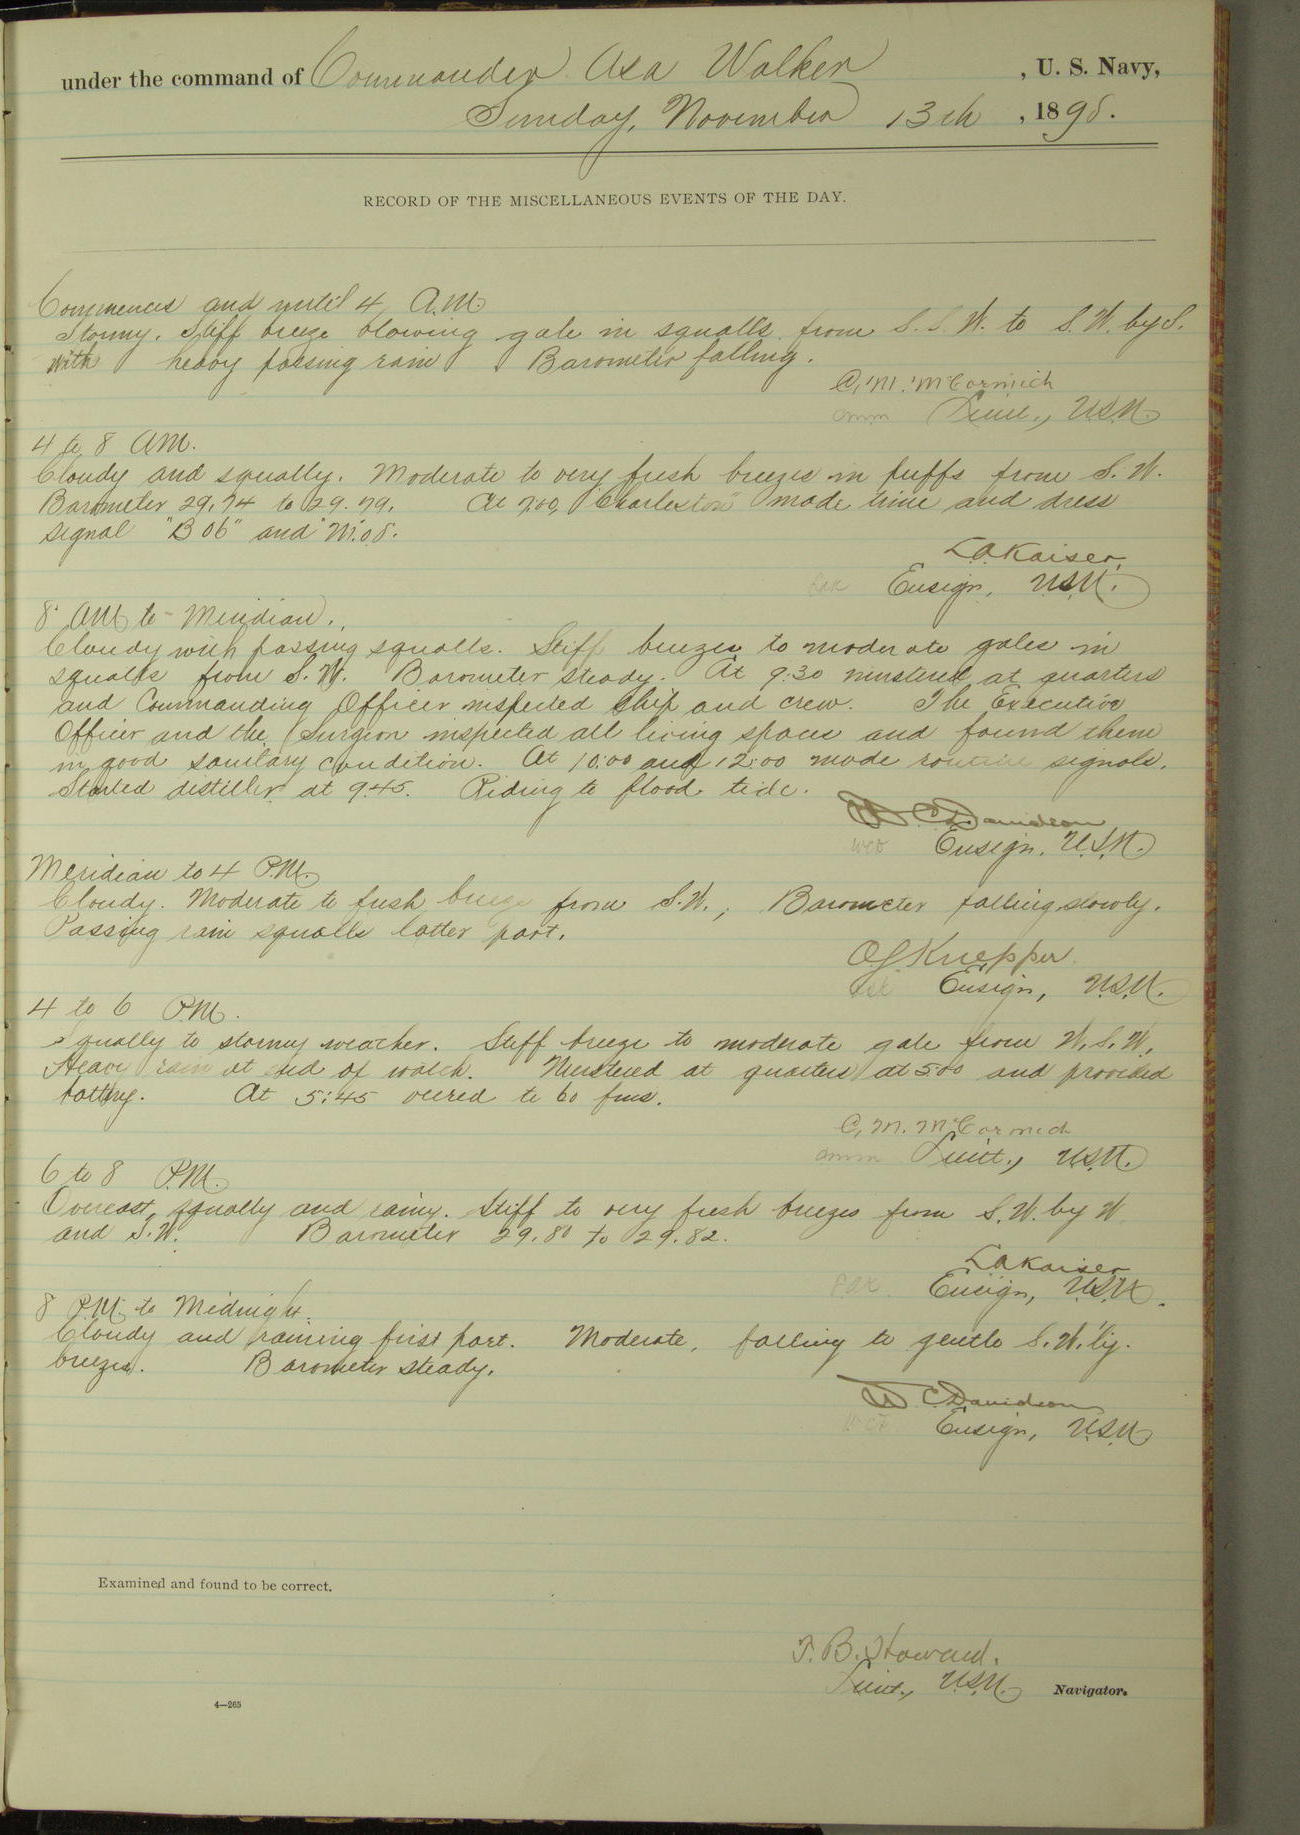 under the command of Commander Asa Walker, U. S. Navy,
Sunday, November 13th, 1898.
RECORD OF THE MISCELLANEOUS EVENTS OF THE DAY.
Commences and until 4 A.M.
Stormy. Stiff breeze blowing gale in squalls from S.S.W. to S.W. by S.
with heavy passing rain Barometer falling.
C. M. McCormick
cmm Lieut., U.S.N.
4 to 8 AM.
Cloudy and squally. Moderate to very fresh breezes in puffs from S.W.
Barometer 29.74 to 29.79. At 7.00, "Charleston" made time and dress
signal "B 06" and
L A Kaiser,
LAK Ensign, U.S.N.
8 AM to Meridian.
Cloudy with passing squalls. Stiff breezes to moderate gales in
squalls from S.W. Barometer steady. At 9:30 mustered at quarters
and Commanding Officer inspected ship and crew. The Executive
Officer and the Surgeon inspected all living spaces and found them
in good sanitary condition. At 10:00 and 12:00 made routine signals.
Started distiller at 9.45. Riding to flood tide.
W C Davidson
WCD Ensign, U.S.N.
Meridian to 4 P.M.
Cloudy. Moderate to fresh breeze from S.W., Barometer falling slowly.
Passing rain squalls latter part.
O J Knepper
Ensign, U.S.N.
4 to 6 P.M.
Squally to stormy weather. Stiff breeze to moderate gale from W.S.W.
Heavy rain at end of watch. Mustered at quarters at 5 00 and provided
battery. At 5:45 veered to 60 fms.
C. M. McCormick
cmm Lieut., U.S.N.
6 to 8 P.M.
Overcast, squally and rainy. Stiff to very fresh breezes from S.W. by W
and S.W. Barometer 29.80 to 29.82.
L A Kaiser
LAK Ensign, U.S.N.
8 P.M. to Midnight.
Cloudy and raining first part. Moderate, falling to gentle S.W.'ly.
breezes. Barometer steady.
W C Davidson
WCD Ensign, U.S.N.
Examined and found to be correct.
T. B. Howard.
Lieut., U.S.N. Navigator.
4—265